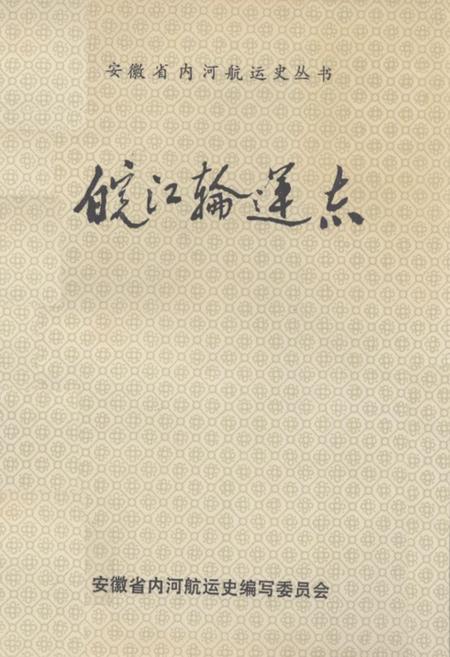 安徽省内河航运史丛书
皖江輪運志
安徽省内河航运史编写委员会